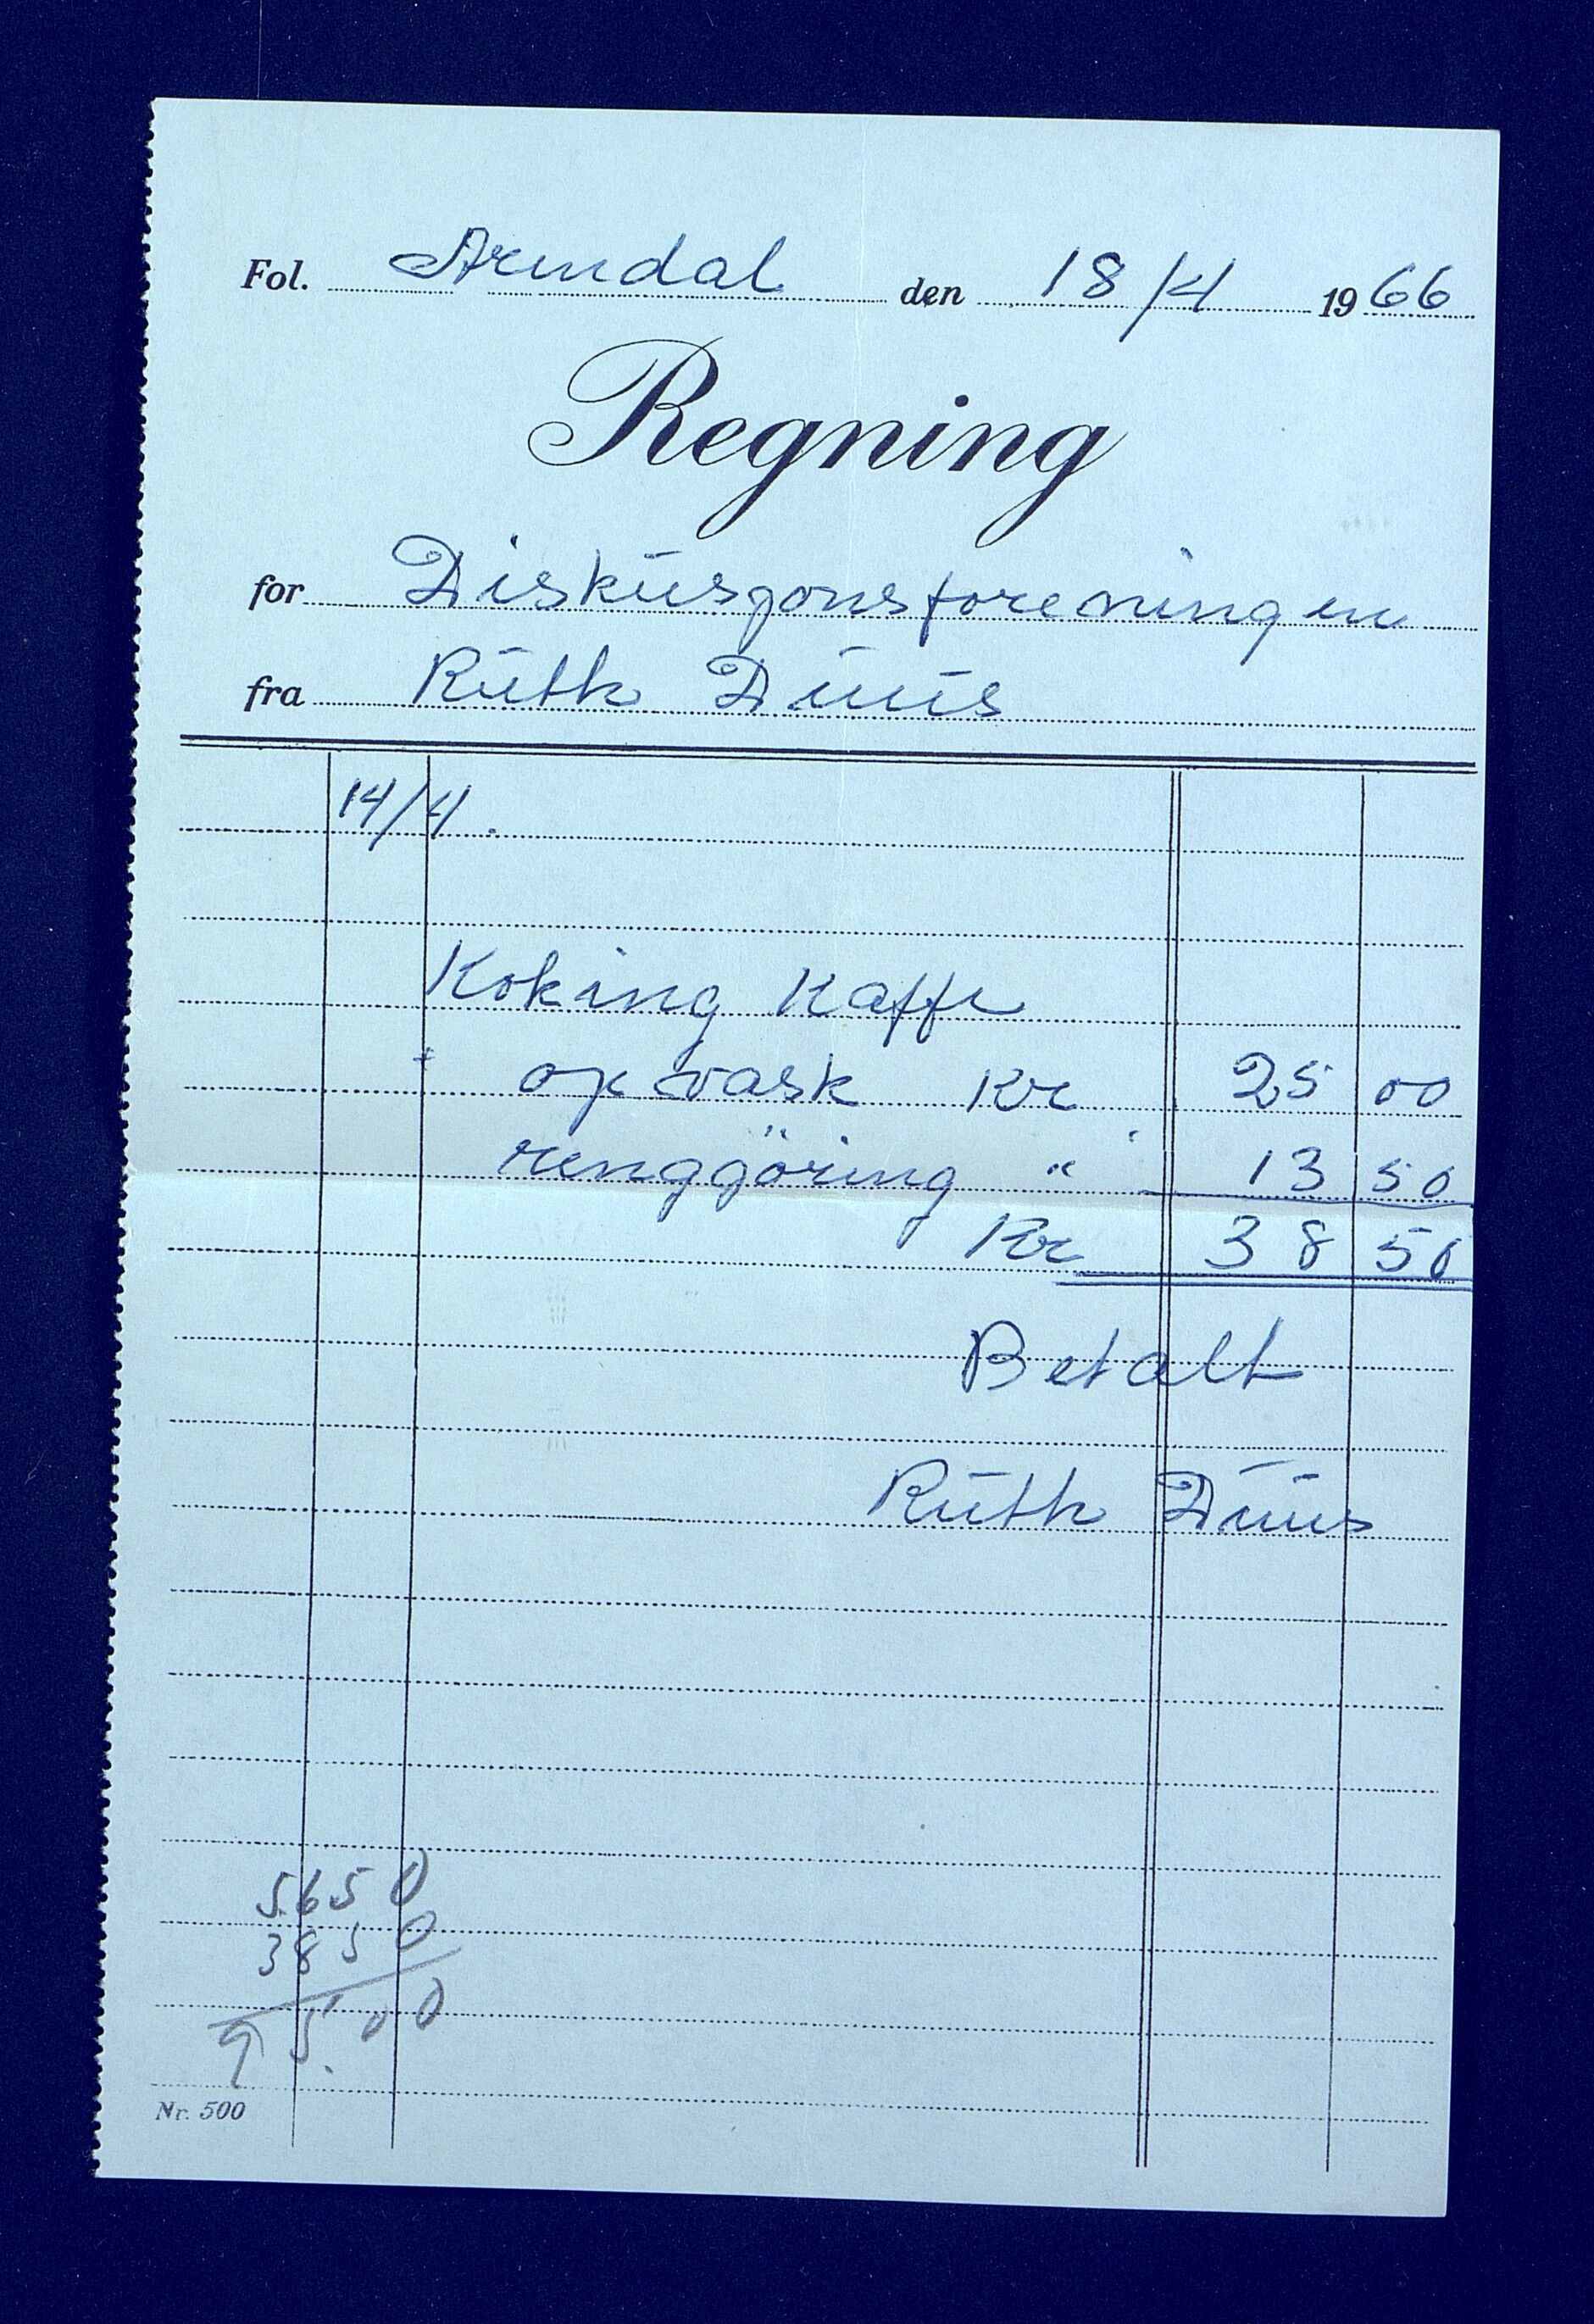 Fol. Arendal den 18/4 1966
Regning
for Diskusjonsforeningen
fra Ruth Duus
14/4.
Koking Kaffe
opvask Kr 25 00
renggöring " 13 50
Kr 38 50
Betalt
Ruth Duus
5650
3850
95.00
Nr. 500